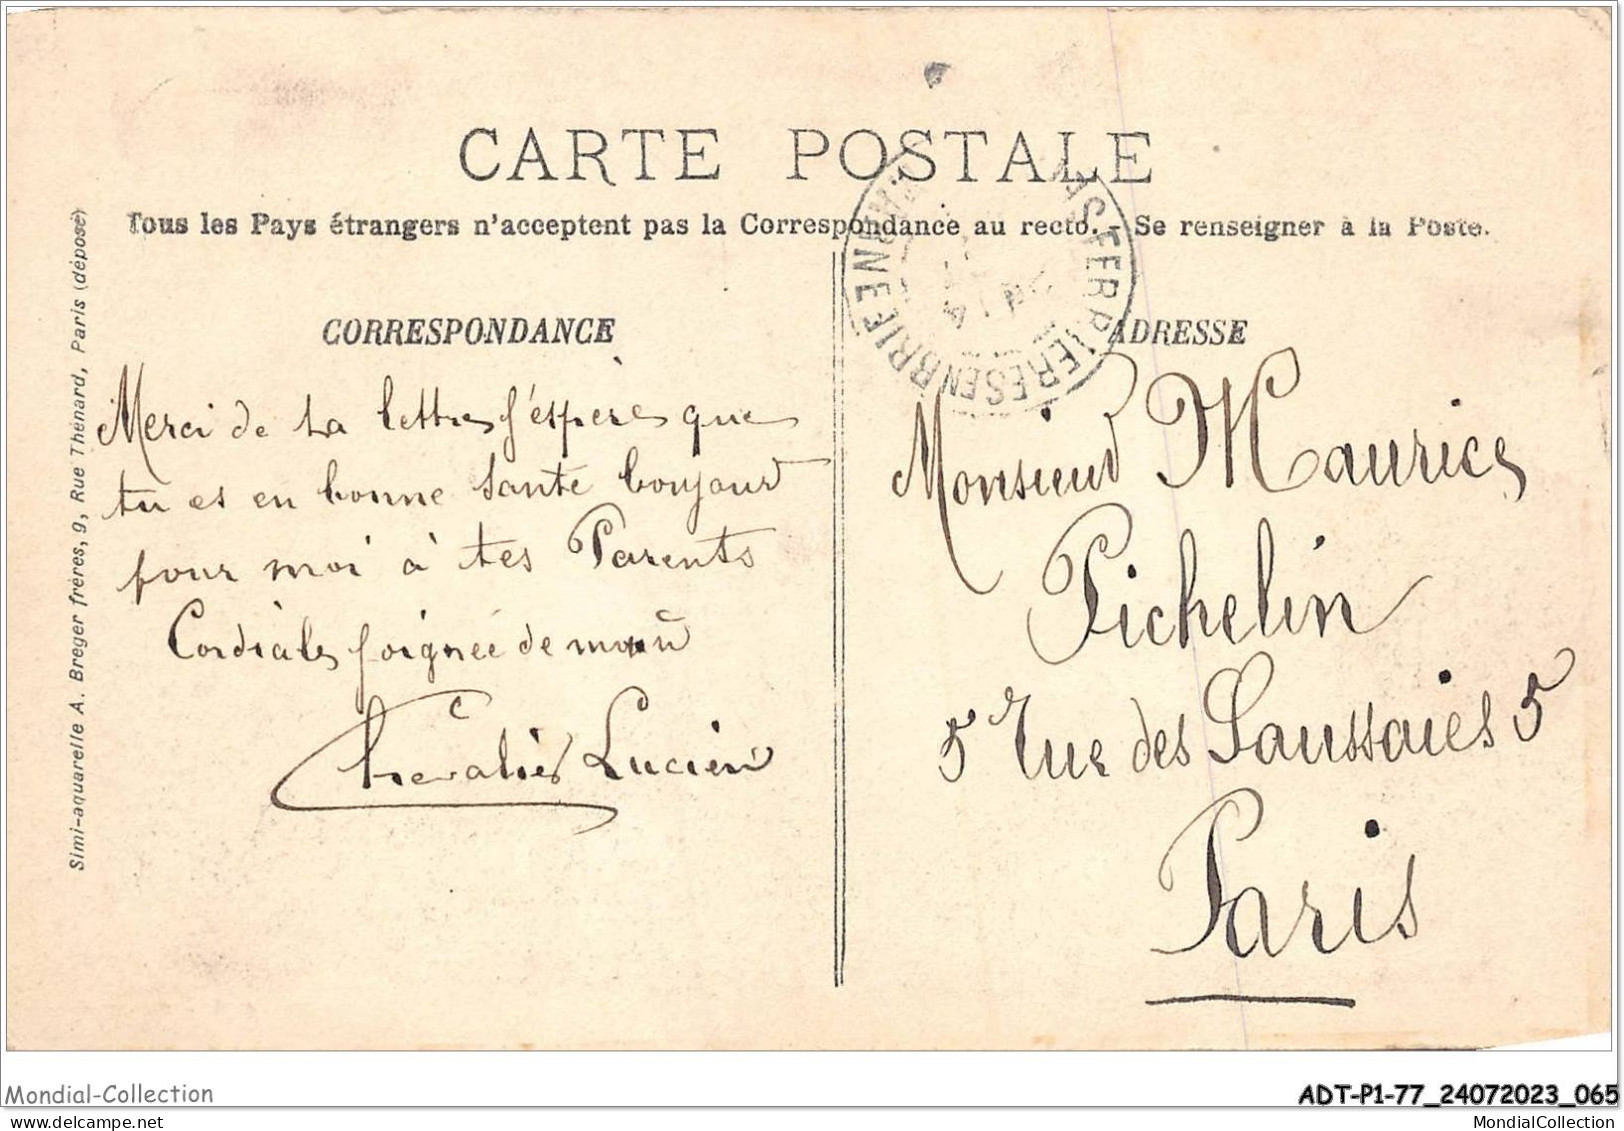 CARTE POSTALE
Tous les Pays étrangers n'acceptent pas la Correspondance au recto. - Se renseigner à la Poste.
CORRESPONDANCE
Merci de ta lettre j'éspère que
tu es en bonne Santé bonjour
pour moi à tes Parents
Cordiales poignée de main
Chevalier Lucien
ADRESSE
Monsieur Maurice
Pichelin
5 Rue des Saussaies 5
Paris
FERRIERES EN BRIE
Simi-aquarelle A. Breger frères, 9, Rue Thénard, Paris (déposé)
Mondial-Collection
ADT-P1-77_24072023_065
MondialCollection